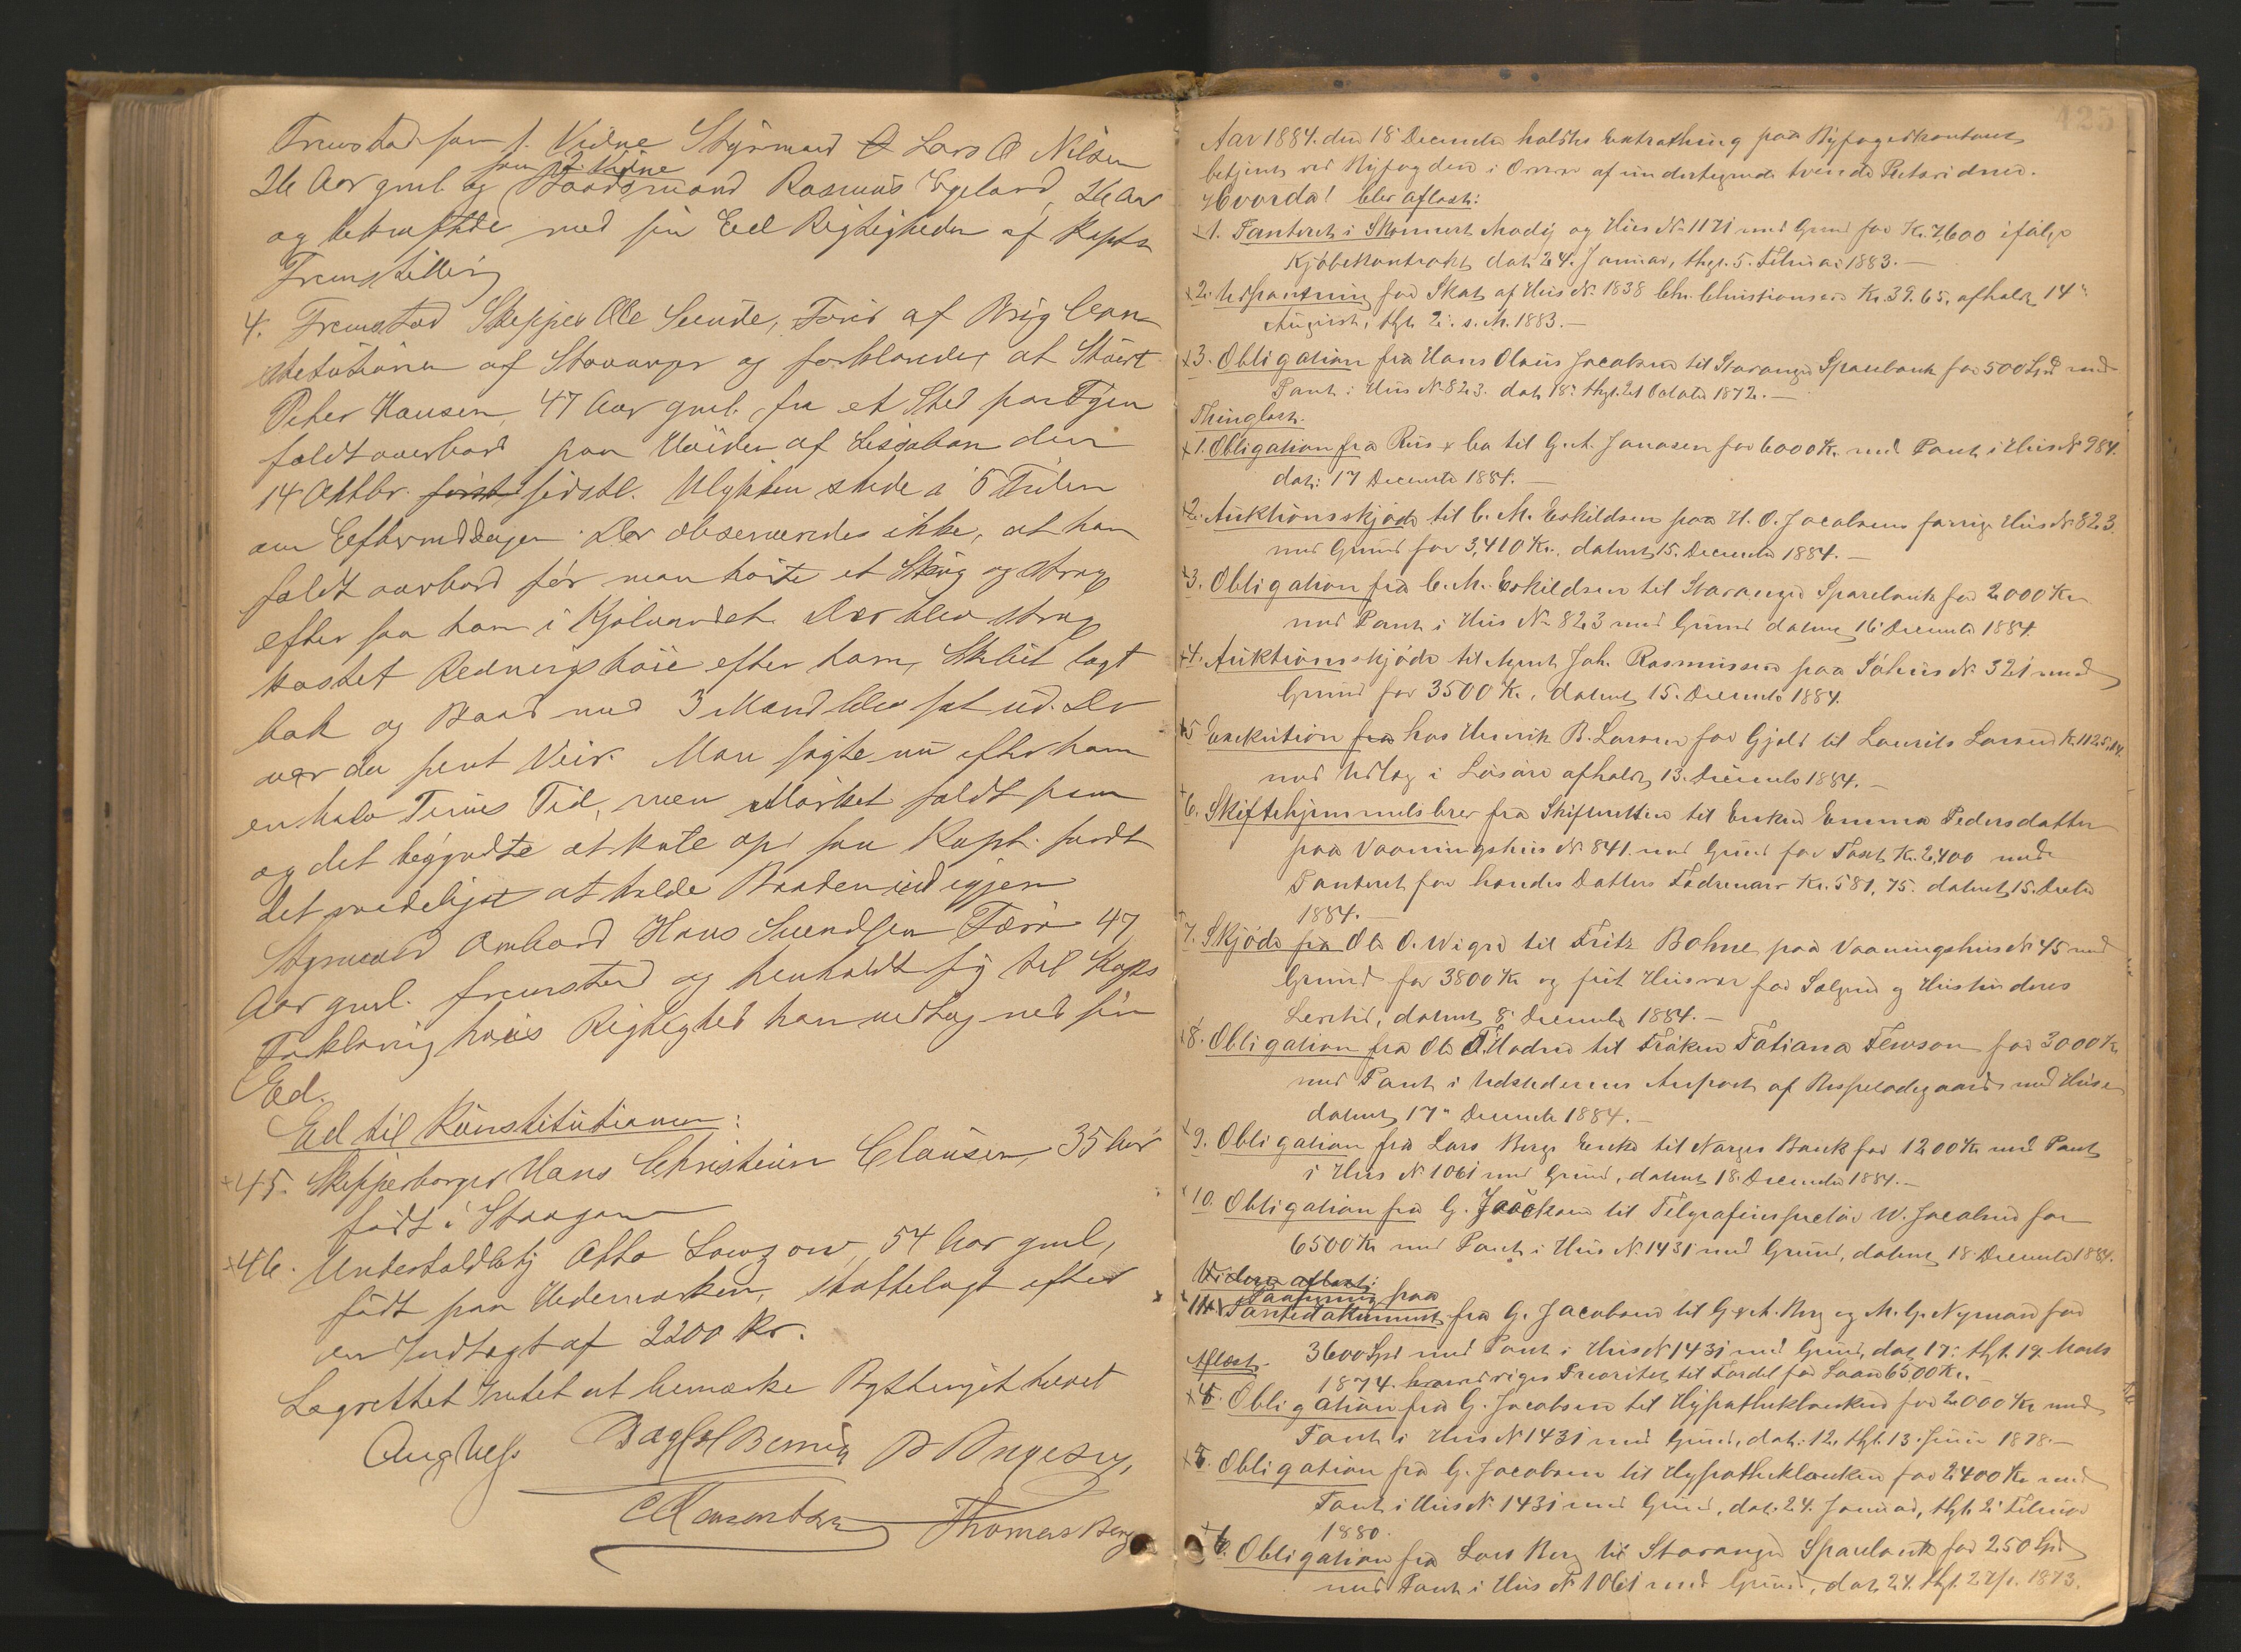 Fremstod som 1. Vidne Styrmand Lars O Nilsen
som 2. Vidne
26 Aar gml. og Baadsmand Rasmus Egeland, 26 Aar
og bekræftede med sin Eed Rigtigheden af Kapts
Fremstilling
4. Fremstod Skipper Ole Sunde, Fører af Brig Con
stitutionen af Stavanger og forklarede, at Stuert
Peter Hansen, 47 Aar gml. fra et Sted paa Fyen
faldt overbord paa Høiden af Lissabon den
14 Oktbr. først sidstl. Ulykken skede à 5 Tiden
om Eftermiddagen. Der observeredes ikke, at han
faldt overbord før man hørte et Skrig og strax
efter saa ham i Kjølvandet. Der blev strax
kastet Redningsbøie efter ham, Skibet lagt
bak og Baad med 3 Mand blev sat ud. Der
var da pent Veir. Man søgte nu efter ham
en halv Times Tid, men Mørket faldt paa
og det begyndte at kule op saa Kapt. fandt
det raadeligst at kalde Baaden ind igjen
Styrmand ombord Hans Svendsen Færø 47
Aar gml. fremstod og henholdt sig til Kapts
Forklaring hvis Rigtighed han vedtog med sin
Ed.
Ed til Konstitutionen:
45. Skipperborger Hans Christian Clausen, 35 Aar
født i Stavanger
46. Undertoldbetj Otto Lowzow, 54 Aar gml,
født paa Hedemarken, skattelagt efter
en Indtægt af 2200 Kr.
Lagrettet Intet at bemærke Bythinget hævet
Aug Hess
Thomas Berg
125
Aar 1884. den 18 December holdtes Extrathing paa Byfogedkontoret
betjent ved Byfogden i Overvær af undertegnede tvende Retsvidner.
Hvorda! blev aflæst:
1. Panteret i Skonnert Mödig og Hus No 1171 med Grund for Kr. 7,600 ifølge
Kjøbekontrakt dat. 24. Januar, thgl. 5. Februar 1883.—
2. Udpantning for Skat af Hus No 1838 Chr. Christiansens Kr. 39.65, afholdt 14
August, thgl. 21. s. M. 1883.—
3. Obligation fra Hans Olaus Jacobsen til Stavanger Sparebank for 500 Spd med
Pant i Hus No 823. dat. 18. thgl. 21 Oktober 1872.—
Thinglæst.
1. Obligation fra Riis & Co til G. A. Jonasen for 6000 Kr. med Pant i Hus No 984.
dat: 17 December 1884.—
2. Auktionsskjøde til C. M. Eskildsen paa H. O. Jacobsens forrige Hus No 823
med Grund for 3,410 Kr., dateret 15. December 1884.—
3. Obligation fra C. M. Eskildsen til Stavanger Sparebank for 2,000 Kr
med Pant i Hus No 823 med Grund dateret 16 December 1884.
4. Auktionsskjøde til Agent Joh. Rasmussen paa Søhus No 321 med
Grund for 3500 Kr., dateret 15. December 1884.
5 Exekution fra hos Henrik B. Larsen for Gjæld til Laurits Larsen K. 1125,14
med Udlæg i Løsøre afholdt 13. December 1884.—
6. Skiftehjemmelsbrev fra Skifteretten til Enken Emma Pedersdatter
paa Vaaningshus No 841. med Grund for Taxt Kr. 2,400 med
Panteret for hendes Datters Fædrenearv Kr. 581,75. dateret 15. Decbr
1884.—
7. Skjøde fra Ole O. Wigre til Fritz Bohne paa Vaaningshus No 45 med
Grund for 3800 Kr og frit Husvær for Sælgeren og Hustru deres
Levetid, dateret 8 December 1884.—
8. Obligation fra Ole T. Hodne til Frøken Tatiana Fewson for 3000 Kr
med Pant i Udstederens Anpart af Bispeladegaard med Huse
dateret 17 December 1884.—
9. Obligation fra Lars Bergs Enke til Norges Bank for 1200 Kr med Pant
i Hus No 1061 med Grund, dateret 18. December 1884.—
10. Obligation fra G. Jacobsen til Telegrafinspectør W. Jacobsen for
6500 Kr med Pant i Hus No 1431 med Grund, dateret 18 December 1884.
Videre aflæst:
Paategning paa
11. Pantedokument fra G. Jacobsen til G & A. Berg og M. G. Nyman for
3600 Spd med Pant i Hus No 1431 med Grund, dat. 17. thgl. 19. Marts
Aflæst. 1874. hvorved viges Prioritet til Fordel for Laan 6500 Kr.
4. Obligation fra G. Jacobsen til Hypothekbanken for 2000 Kr med
Pant i Hus No 1431 med Grund, dat. 12. thgl. 13. Juni 1878.—
5. Obligation fra G. Jacobsen til Hypothekbanken for 2,400 Kr med
Pant i Hus No 1431 med Grund, dat. 24. Januar, thgl. 2 Februar
1880.
6. Obligation fra Lars Berg til Stavanger Sparebank for 250 Spd
med Pant i Hus No 1061 med Grund, dat. 24. thgl. 1873.